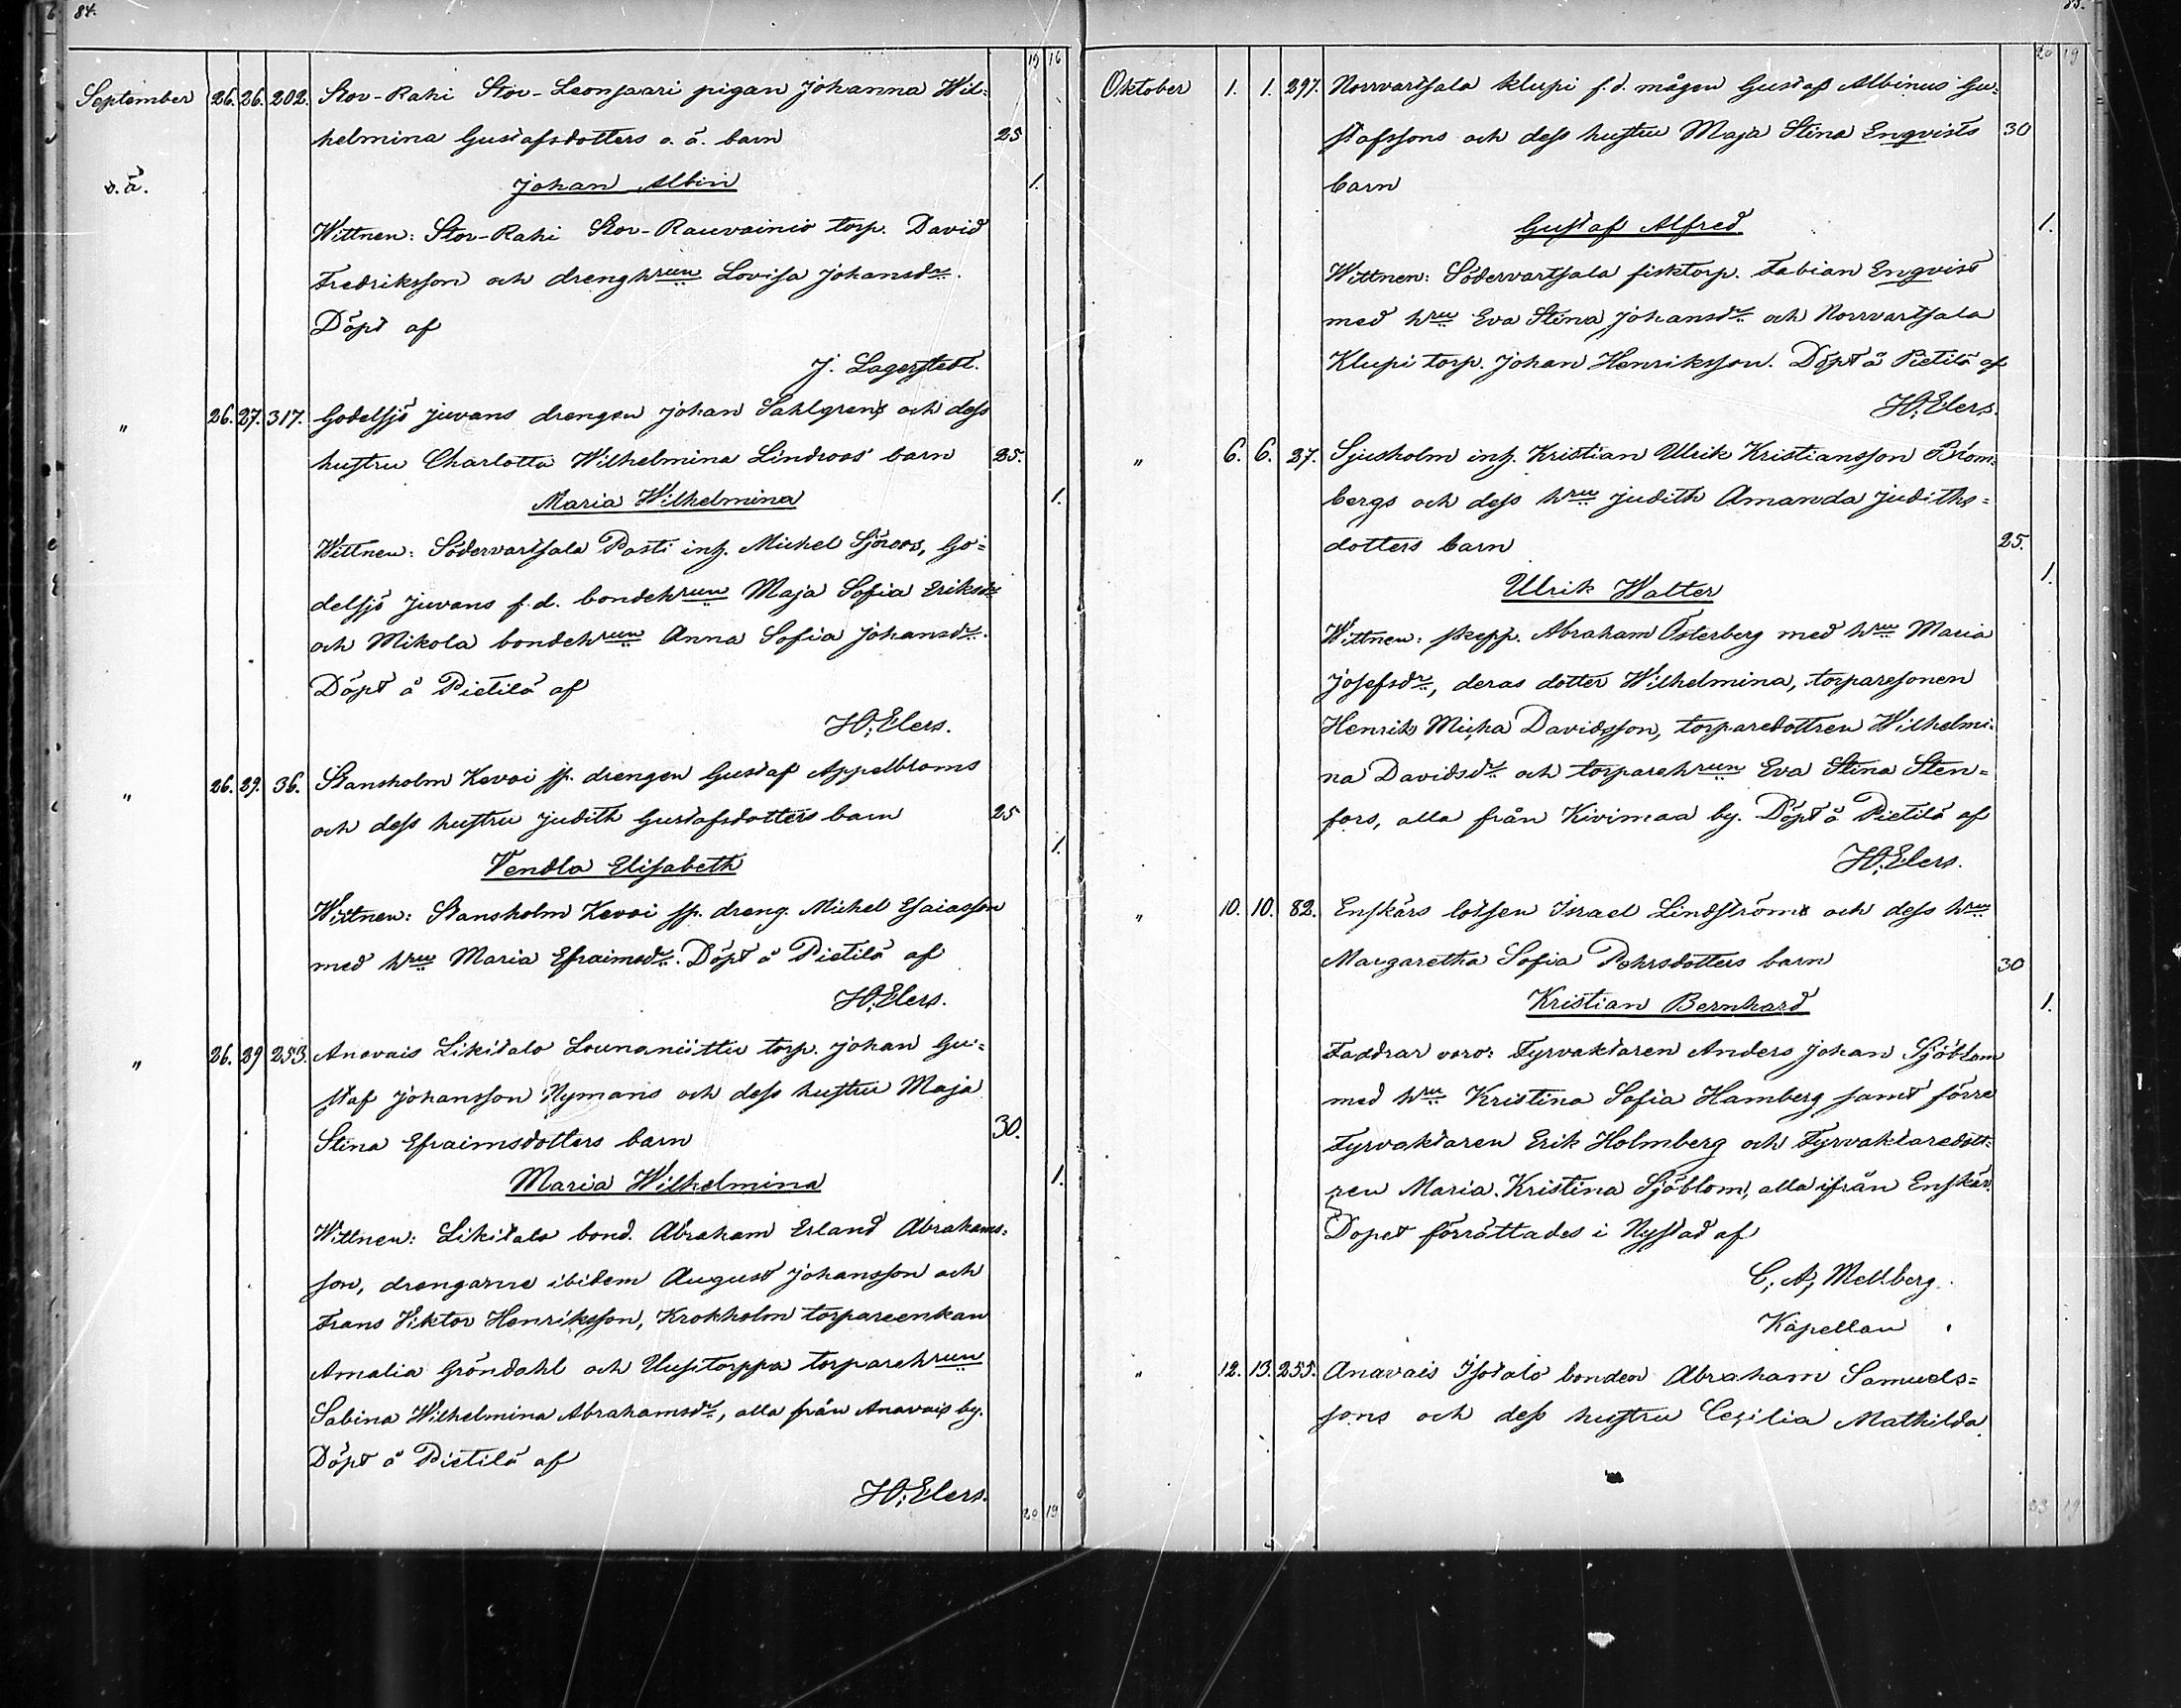 84.
19 16
September 26. 26. 202. Stor-Rahi Stor-Leonsaari pigan Johanna Wil-
helmina Gustafsdotters o. ä. barn 25
o. ä. Johan Albin 1.
Wittnen: Stor-Rahi Stor-Rauvainio torp. David
Fredriksson och drenghrun Lovisa Johansdr.
Döpt af
J. Lagerstedt.
" 26. 27. 317. Godelsjö Juvans drengen Johan Sahlgrens och dess
hustru Charlotta Wilhelmina Lindroos barn 25.
Maria Wilhelmina 1.
Wittnen: Södervartsala Pasti inh. Michel Sjöroos, Go-
delsjö Juvans f.d. bondehrun Maja Sofia Eriksdr
och Mikola bondehrun Anna Sofia Johansdr.
Döpt å Pietilä af
H. Elers.
" 26. 29. 36. Stansholm Kevoi sp. drengen Gustaf Appelbloms
och dess hustru Judith Gustafsdotters barn 25
Vendla Elisabeth 1.
Wittnen: Stansholm Kevoi sp. dreng. Michel Esaiasson
med hru Maria Efraimsdr. Döpt å Pietilä af
H. Elers.
" 26. 29 253. Anavais Likitalo Lounaniittu torp. Johan Gu-
staf Johansson Nymans och dess hustru Maja
Stina Efraimsdotters barn 30.
Maria Wilhelmina 1.
Wittnen: Likitalo bond. Abraham Erland Abrahams-
son, drengarne ibidem August Johansson och
Frans Viktor Henriksson, Krokholm torpareenkan
Amalia Gröndahl och Uusitorppa torparehrun
Sabina Wilhelmina Abrahamsdr, alla från Anavais by.
Döpt å Pietilä af
H. Elers.
20 19
85.
20 19
Oktober 1. 1. 297. Norrvartsala Klupi f.d. mågen Gustaf Albinus Gu-
stafssons och dess hustru Maja Stina Engvists 30
barn
Gustaf Alfred 1.
Wittnen: Södervartsala fisktorp. Fabian Engvist
med hru Eva Stina Johansdr och Norrvartsala
Klupi torp. Johan Henriksson. Döpt å Pietilä af
H. Elers.
" 6. 6. 27. Sjusholm inh. Kristian Ulrik Kristiansson Blom-
bergs och dess hru Judith Amanda Judiths-
dotters barn 25.
Ulrik Walter 1.
Wittnen: skepp. Abraham Österberg med hru Maria
Josefsdr, deras dotter Wilhelmina, torparesonen
Henrik Micha Davidsson, torparedottren Wilhelmi-
na Davidsdr och torparehrun Eva Stina Sten-
fors, alla från Kivimaa by. Döpt å Pietilä af
H. Elers.
" 10. 10. 82. Enskärs lotsen Israel Lindströms och dess hru
Margaretha Sofia Pehrsdotters barn 30
Kristian Bernhard 1.
Faddrar voro: Fyrvaktaren Anders Johan Sjöblom
med hru Kristina Sofia Hamberg samt förre
Fyrvaktaren Erik Holmberg och Fyrvaktaredott-
ren Maria Kristina Sjöblom, alla ifrån Enskär.
Dopet förrättades i Nystad af
C. A. Mellberg.
Kapellan
" 12. 13. 255. Anavais Isotalo bonden Abraham Samuels-
sons och dess hustru Cecilia Mathilda
23 19